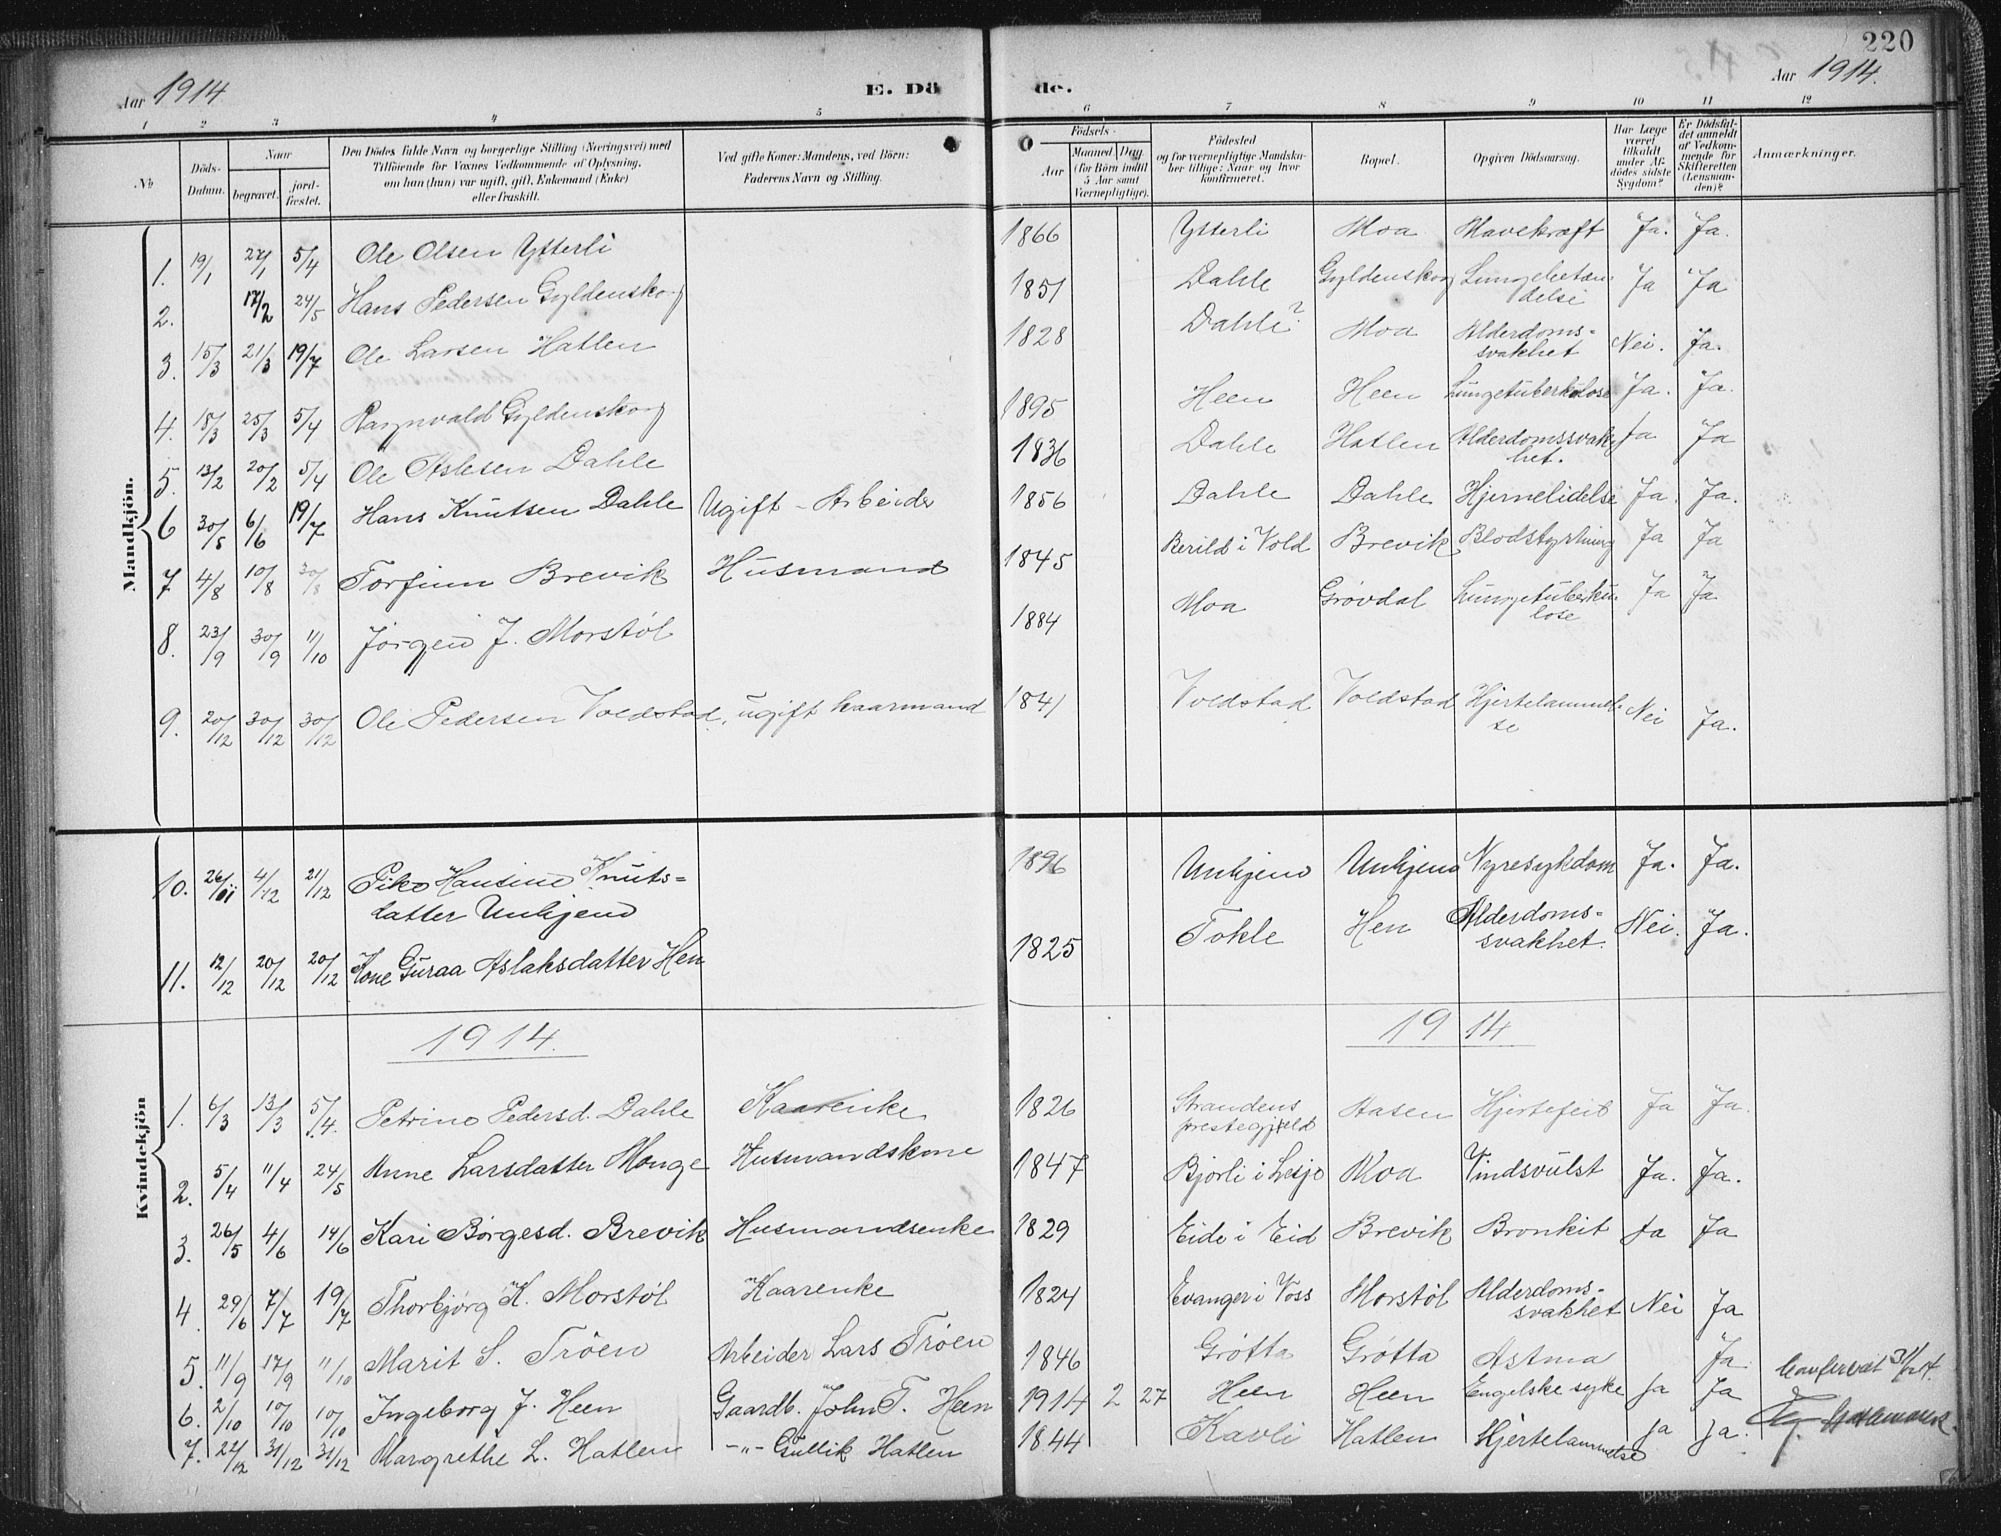 220
Aar 1914
E. Dö de.
Aar 1914.
1 2 3 4 5 6 7 8 9 10 11 12
No
Döds-Datum.
Naar
begravet.
jord-fæstet.
Den Dödes fulde Navn og borgerlige Stilling (Næringsvei) med
Tilföiende for Voxnes Vedkommende af Oplysning,
om han (hun) var ugift, gift, Enkemand (Enke)
eller fraskilt.
Ved gifte Koner: Mandens, ved Börn:
Faderens Navn og Stilling.
Födsels-
Aar
Maaned Dag
(for Börn indtil
5 Aar samt
Værnepligtige).
Födested
og for værnepligtige Mandska-
ber tillige: Naar og hvor
konfirmeret.
Bopæl.
Opgiven Dödsaarsag.
Har Læge
været
tilkaldt
under Af-
dödes sidste
Sygdom?
Er Dödsfal-
det anmeldt
af Vedkom-
mende for
Skifteretten
(Lensman-
den)?
Anmærkninger.
Mandkjön.
1. 19/1 27/1 5/4 Ole Olsen Ytterli 1866 Ytterli Moa Mavekræft Ja. Ja.
2. 17/2 24/5 Hans Pedersen Gyldenskog 1851 Dahle Gyldenskog Lungebetæn
delse Ja Ja
3. 15/3 21/3 19/7 Ole Larsen Hatlen 1828 Dahle? Moa Alderdoms-
svakhet Nei. Ja.
4. 18/3 25/3 5/4 Ragnvald Gyldenskog 1895 Heen Heen Lungetuberkulose Ja. Ja.
5. 13/2 20/2 5/4 Ole Aslesen Dahle 1836 Dahle Hatlen Alderdomssvak
het. Ja Ja
6 30/5 6/6 19/7 Hans Knutsen Dahle Ugift - Arbeider 1856 Dahle Dahle Hjernelidelse Ja. Ja.
7 4/8 10/8 30/8 Torfinn Brevik Husmand 1845 Berild i Vold Brevik Blodstyrtning Ja Ja
8. 23/9 30/9 11/10 Jørgen J. Morstøl 1884 Moa Grøvdal Lungetuberku
lose Ja Ja
9. 20/12 30/12 30/12 Ole Pedersen Voldstad, ugift kaarmand 1841 Voldstad Voldstad Hjertelammel-
se Nei Ja.
10. 26/11 4/12 21/12 Hansine Knuts-
datter Unhjend 1896 Unhjend Unhjend Nyresykdom Ja. Ja.
11. 12/12 20/12 20/12 Kone Guraa Aslaksdatter Hen 1825 Tokle Hen Alderdoms-
svakhet. Nei. Ja.
1914. 1914
Kvindekjön
1. 6/3 13/3 5/4. Petrine Pedersd. Dahle Kaarenke 1826 Strandens
prestegjeld Aasen Hjertefeil Ja Ja.
2. 5/4 11/4 24/5 Anne Larsdatter Monge Husmandskone 1847 Bjorli i Lesje Moa Vindsvulst Ja. Ja.
3. 26/5 4/6 14/6 Kari Børgesd. Brevik Husmandsenke 1829 Eide i Eid Brevik Bronkit Ja Ja
4. 29/6 7/7 19/7 Thorbjørg K. Morstøl Kaarenke 1824 Evanger i Voss Morstøl Alderdoms-
svakhet Nei Ja
5. 11/9 17/9 11/10 Marit S. Trøen Arbeider Lars Trøen 1846 Grøtta Grøtta Astma Ja
6. 2/10 10/10 10/10 Ingeborg J. Heen Gaardb. John T. Heen 1914 2 27 Heen Heen Engelske syke Ja Ja
7. 22/12 31/12 31/12 Margrethe L. Hatlen -"- Gullik Hatlen 1844 Kavli Hatlen Hjertelammelse Ja Ja.